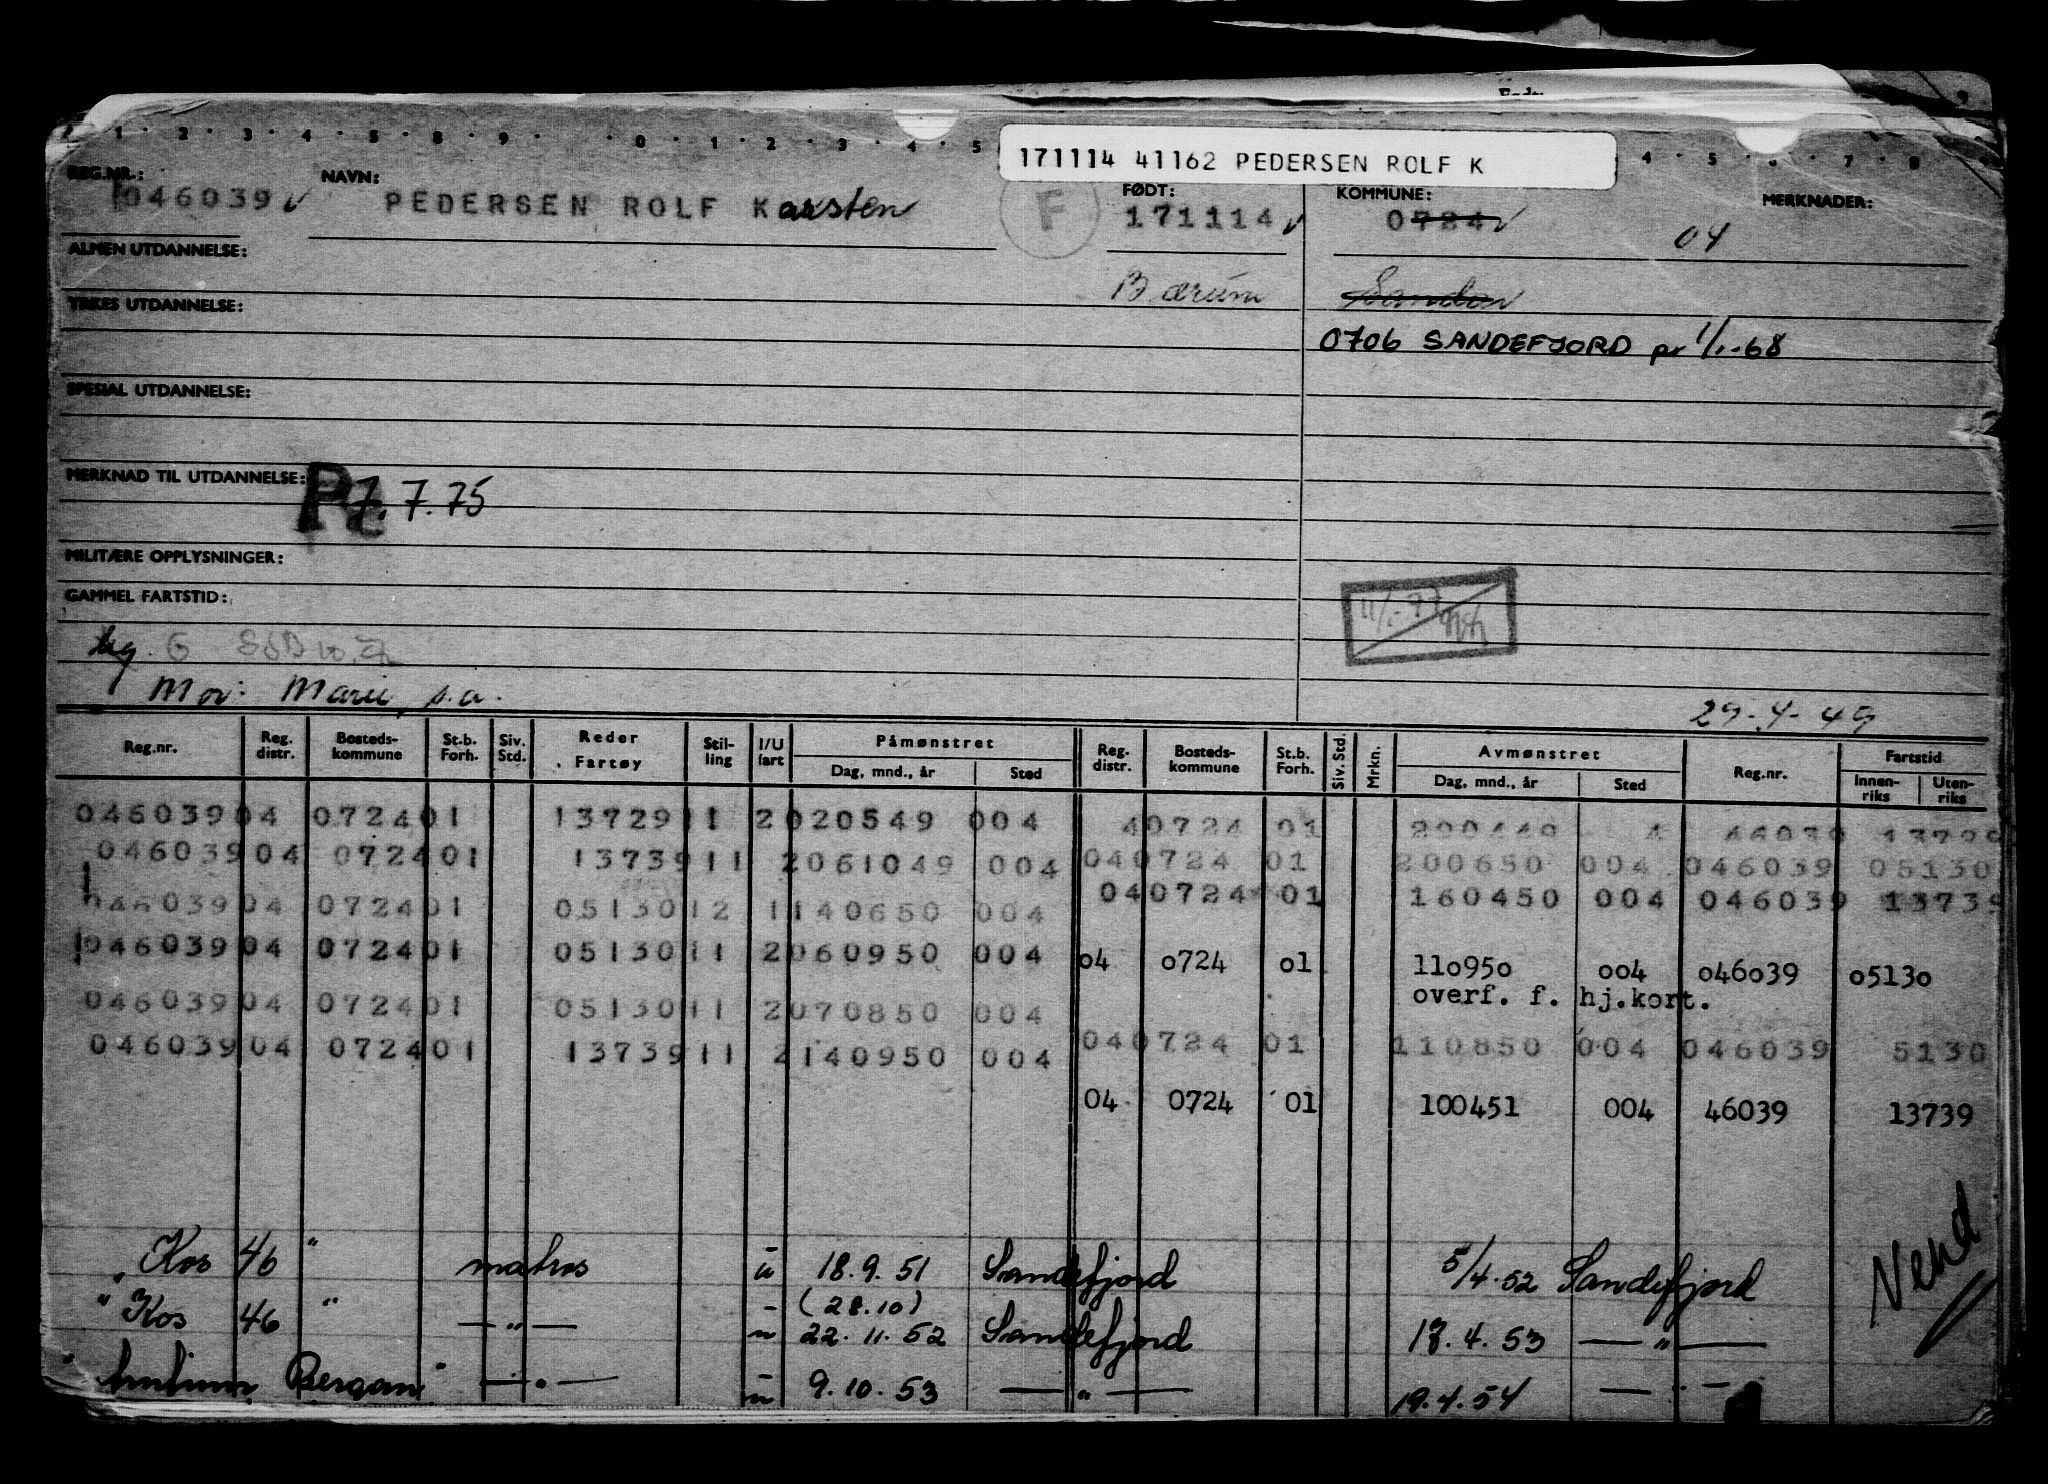 171114 41162 PEDERSEN ROLF K
REG.NR.: NAVN: FØDT: KOMMUNE: MERKNADER:
046039 PEDERSEN ROLF Karsten F 171114 0724 04
ALMEN UTDANNELSE:
Bærum Sandar
YRKES UTDANNELSE:
0706 SANDEFJORD pr 1/1-68
SPESIAL UTDANNELSE:
MERKNAD TIL UTDANNELSE: P 7.7.75
MILITÆRE OPPLYSNINGER:
GAMMEL FARTSTID:
Mor: Marie, s.a.
29-4-49
Reg.nr. Reg. distr. Bosteds-kommune St.b. Forh. Siv. Std. Reder Fartøy Stil-ling I/U fart Påmønstret Dag, mnd., år Sted Reg. distr. Bosteds-kommune St.b. Forh. Siv. Std. Mrkn. Avmønstret Dag, mnd., år Sted Reg.nr. Fartstid Innen-riks Uten-riks
046039 04 0724 01 13729 11 2 020549 004 40724 01 200449 4 46039 13729
046039 04 0724 01 13739 11 2 061049 004 04 0724 01 200650 004 046039 05130
04 0724 01 160450 004 046039 13739
046039 04 0724 01 05130 12 1 140650 004
046039 04 0724 01 05130 11 2 060950 004 04 0724 01 110950 004 046039 05130
overf. f. hj.kort.
046039 04 0724 01 05130 11 2 070850 004
046039 04 0724 01 13739 11 2 140950 004 04 0724 01 110850 004 046039 5130
04 0724 01 100451 004 46039 13739
"Kos 46" matros u 18.9.51 Sandefjord 5/4.52 Sandefjord
(28.10)
"Kos 46" — " — u 22.11.52 Sandefjord 17.4.53 — " —
Bergan" — " — u 9.10.53 — " — 19.4.54 — " —
Vend